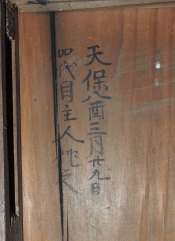 天保八酉三月廿九日
四代目主人